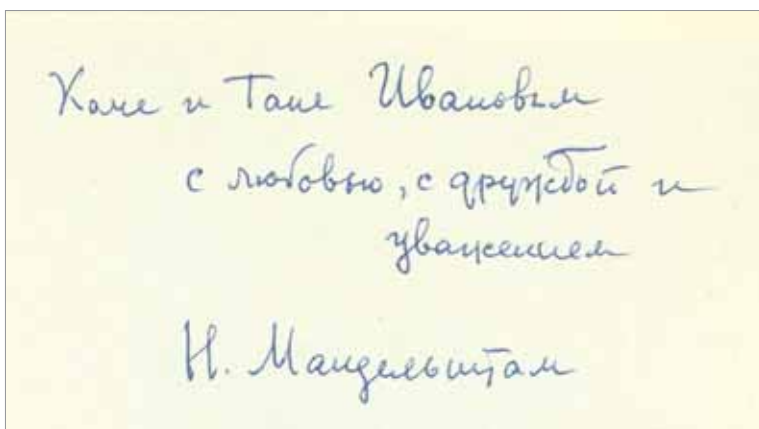 Коме и Тане Ивановым
с любовью, с дружбой и
уважением
Н. Мандельштам